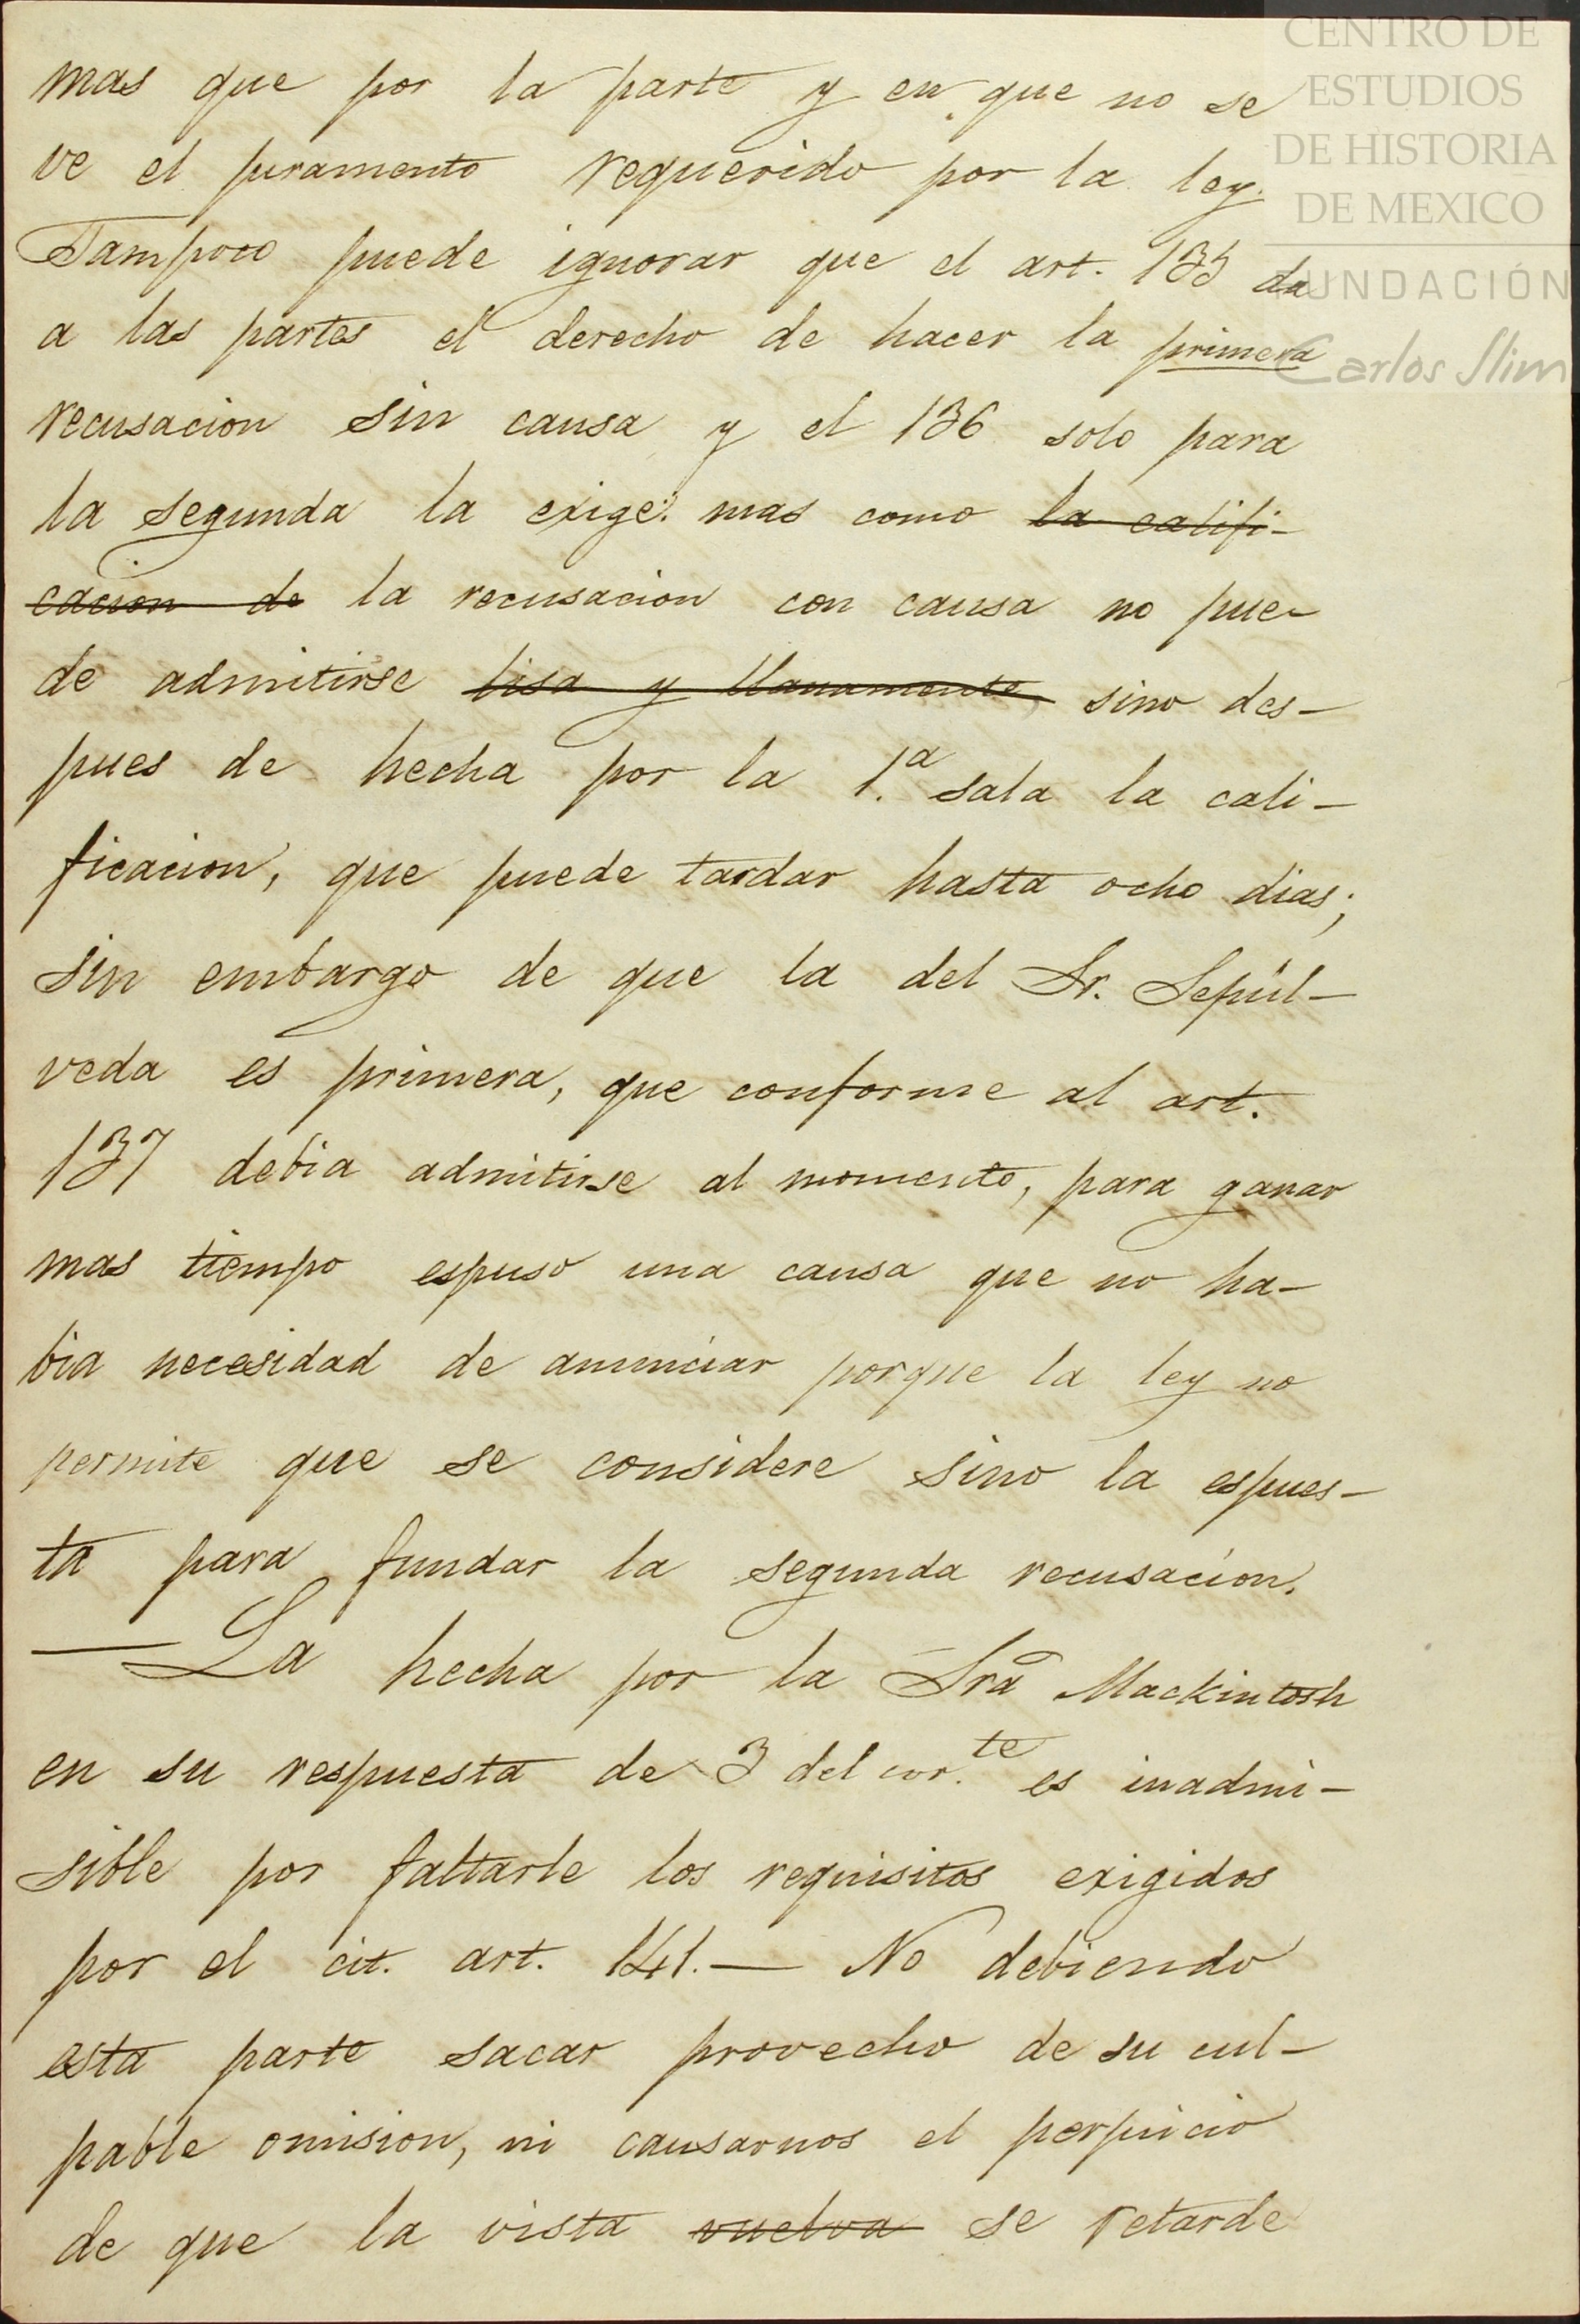 CENTRO DE
ESTUDIOS
DE HISTORIA
DE MEXICO
FUNDACIÓN
Carlos Slim
mas que por la parte y en que no se
ve el juramento requerido por la ley.
Tampoco puede ignorar que el art. 135 da
a las partes el derecho de hacer la primera
recusacion sin causa y el 136 solo para
la segunda la exige: mas como la califi-
cacion de la recusacion con causa no pue-
de admitirse lisa y llanamente sino des-
pues de hecha por la 1.ª sala la cali-
ficacion, que puede tardar hasta ocho dias;
sin embargo de que la del Sr. Sepúl-
veda es primera, que conforme al art.
137 debia admitirse al momento, para ganar
mas tiempo espuso una causa que no ha-
bia necesidad de anunciar porque la ley no
permite que se considere sino la espues-
ta para fundar la segunda recusacion.
—La hecha por la Srâ Mackintosh
en su respuesta de 3 del cor.te es inadmi-
sible por faltarle los requisitos exigidos
por el cit. art. 141.— No debiendo
esta parte sacar provecho de su cul-
pable omision, ni causarnos el perjuicio
de que la vista vuelva se retarde